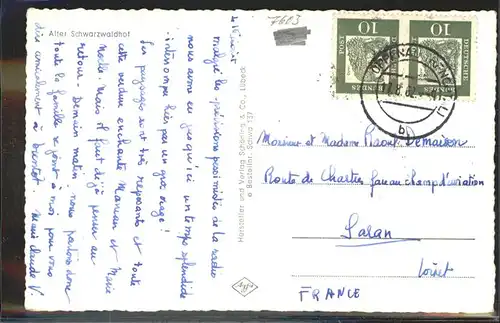 Alter Schwarzwaldhof
7603
4 Août
malgré les prévisions pessimistes de la radio
nous avons eu jusqu'ici un temps splendide
interrompu hier par un gros orage !
Les paysages sont très reposants et toute
cette verdure enchante Maman et Marie
Noëlle. Mais il faut déjà penser au
retour - Demain matin nous partons donc
toute la famille se joint à moi pour vous
dire amicalement à bientôt. Marie Claude V.
Herstellung und Verlag Schöning & Co., Lübeck
DEUTSCHE
BUNDESPOST
10
DEUTSCHE
BUNDESPOST
10
Monsieur et Madame Raoul Demaison
Route de Chartres face au champ d'aviation
Saran
Loiret
FRANCE